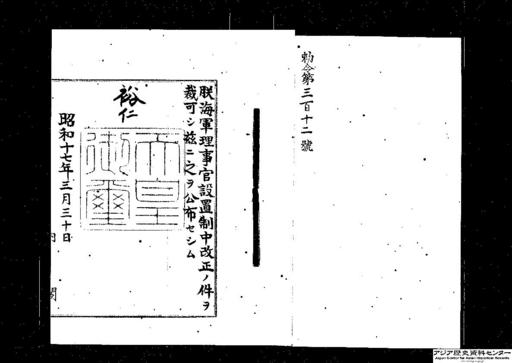 勅令第三百十二號
朕海軍理事官設置制中改正ノ件ヲ
裁可シ茲ニ之ヲ公布セシム
裕仁
天皇
御璽
昭和十七年三月三十日
アジア歴史資料センター
Japan Center for Asian Historical Records